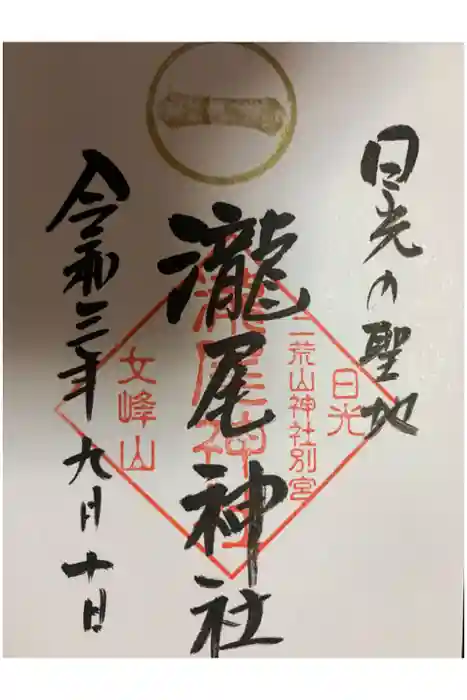 日光の聖地
日光
二荒山神社別宮
一
瀧尾神社
瀧尾神社
女峰山
令和三年九月十日